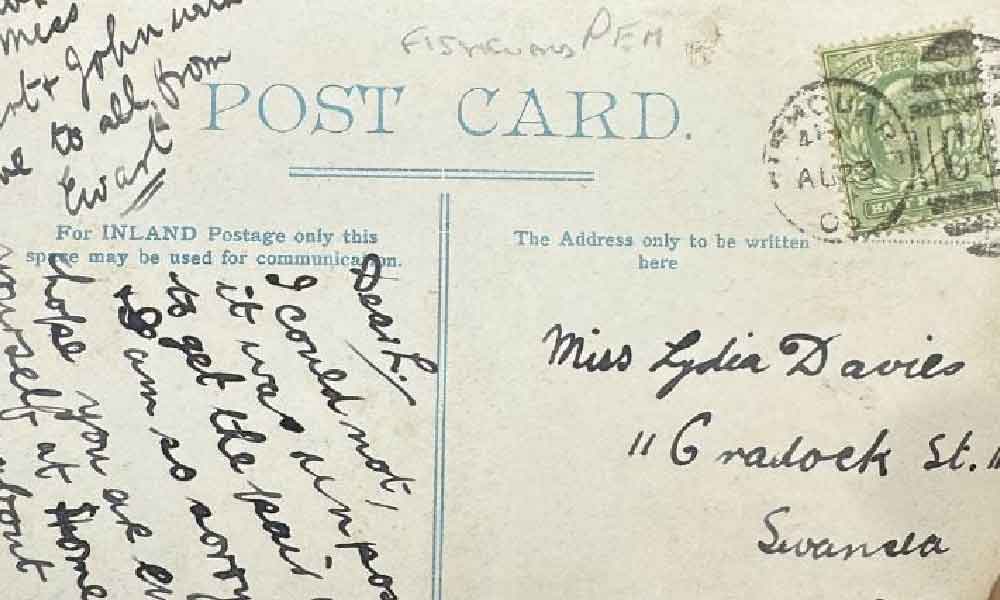 miss
John
to all from
Ewart
FISHGUARD PEM
POST CARD.
For INLAND Postage only this
space may be used for communication.
The Address only to be written
here
AU 23
HALF
Dear L.
I could not,
it was
to get the pair
I am so sorry
hope you are
yourself at Home
about
Miss Lydia Davies
11 Cradock St.
Swansea